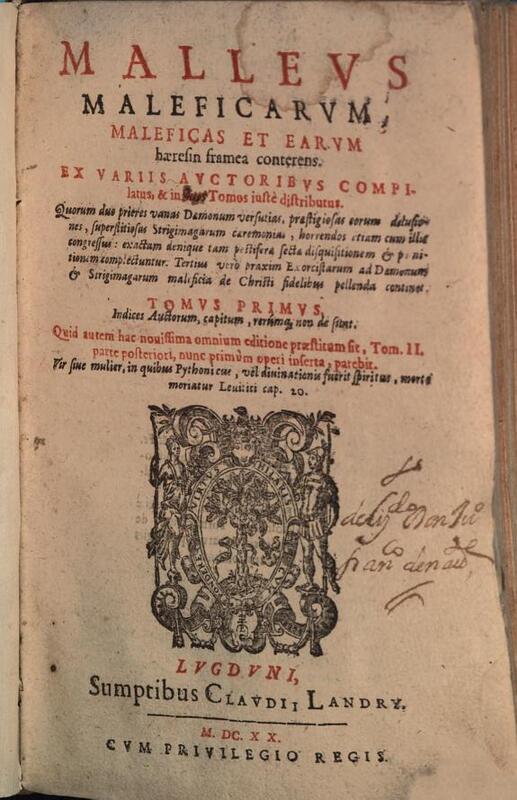 MALLEVS
MALEFICARVM,
MALEFICAS ET EARVM
hæresin framea conterens.
EX VARIIS AVCTORIBVS COMPI-
latus, & in Tomos iustè distributus.
Quorum duo priores vanas Dæmonum versutias, præstigiosas eorum delusio-
nes, superstitiosas Strigimagarum cæremonias, horrendos etiam cum illis
congressus: exactam denique tam pestiferæ sectæ disquisitionem & puni-
tionem complectuntur. Tertius verò praxim Exorcistarum ad Dæmonum
& Strigimagarum maleficia de Christi fidelibus pellenda continet.
TOMVS PRIMVS,
Indices Auctorum, capitum, rerúmque non desunt.
Quid autem hac nouissima omnium editione præstitum sit, Tom. II.
parte posteriori, nunc primùm operi inserta, patebit.
Vir siue mulier, in quibus Pythonicus, vel diuinationis fuerit spiritus, morte
moriatur Leuitici cap. 20.
VIRTVS
LVGDVNI,
Sumptibus CLAVDII LANDRY.
M. DC. XX.
CVM PRIVILEGIO REGIS.